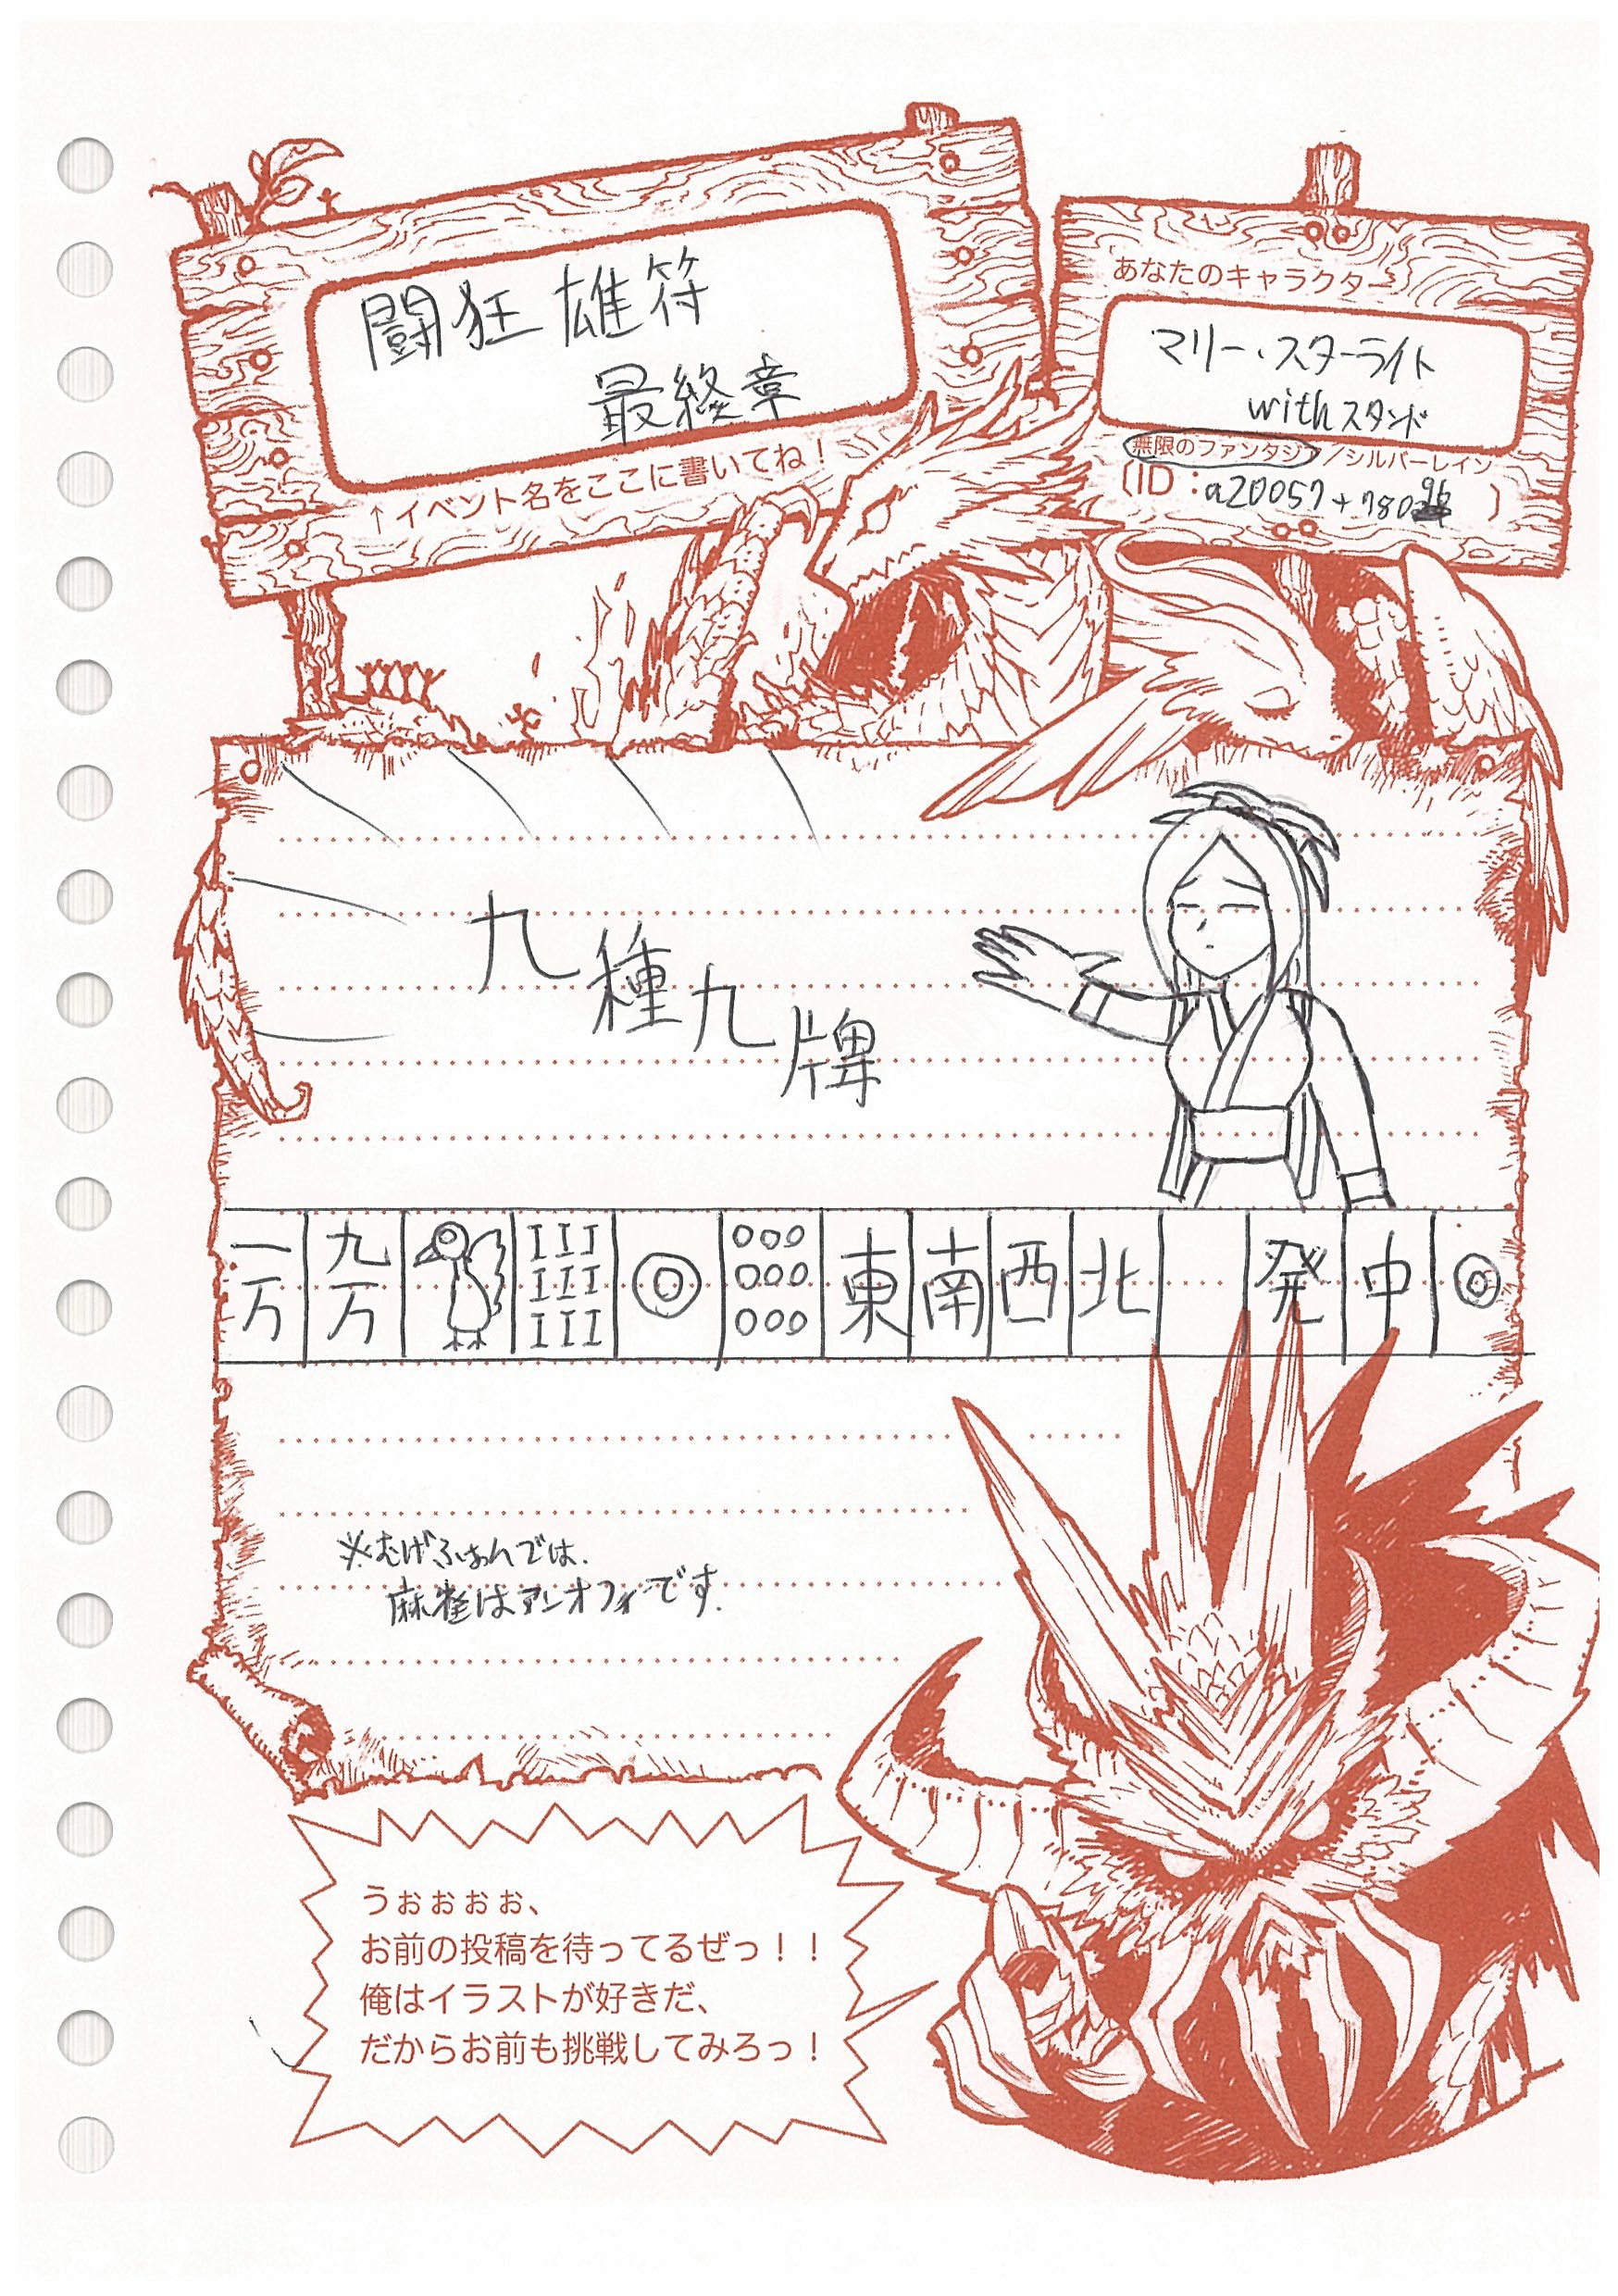 闘狂雄符
最終章
↑イベント名をここに書いてね！
あなたのキャラクター
マリー・スターライト
withスタンド
無限のファンタジア／シルバーレイン
（ID：a20057+78096）
九種九牌
一万 九万 III III III 東 南 西 北 発 中
※むげふぁんでは、
麻雀はアンオフィです。
うぉぉぉぉ、
お前の投稿を待ってるぜっ！！
俺はイラストが好きだ、
だからお前も挑戦してみろっ！